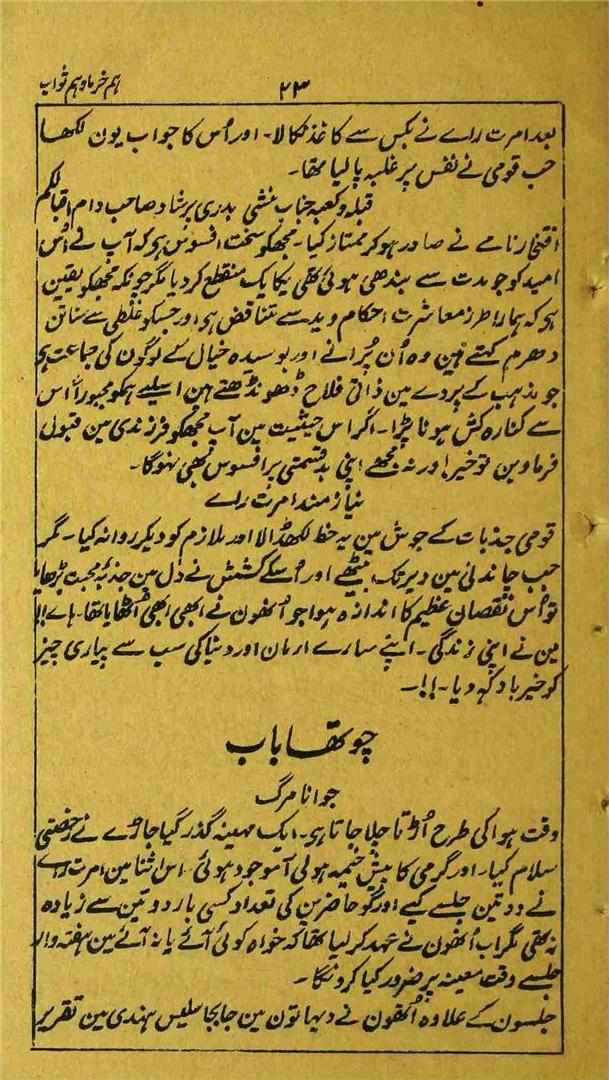 ۲۳ ہم خرما و ہم ثواب
بعد امرت راے نے بکس سے کاغذ نکالا۔ اور اُس کا جواب یون لکھا
حب قومی نے نفس پر غلبہ پا لیا تھا۔
قبلہ و کعبہ جناب منشی بدری پرشاد صاحب دام اقبالکم
افتخار نامے نے صادر ہو کر ممتاز کیا۔ مجھکو سخت افسوس ہی کہ آپ نے اُس
امید کو جو مدت سے بندھی ہوئی تھی یکایک منقطع کر دیا مگر چونکہ مجھکو یقین
ہی کہ ہمارا طرز معاشرت احکام وید سے متناقض ہی اور جسکو غلطی سے سناتن
دھرم کہتے ہین وہ اُن پُرانے اور بوسیدہ خیال کے لوگون کی جماعت ہی
جو مذہب کے پردے مین ذاتی فلاح ڈھونڈھتے ہین اسلیے ہمکو مجبوراً اس
سے کنارہ کش ہونا پڑا۔ اگر اس حیثیت مین آپ مجھکو فرزندی مین قبول
فرماوین تو خیر! ورنہ مجھے اپنی بدقسمتی پر افسوس بھی نہوگا۔
نیاز مند امرت راے
قومی جذبات کے جوش مین یہ خط لکھ ڈالا اور ملازم کو دیکر روانہ کیا۔ مگر
جب چاندنی مین دیر تک بیٹھے اور اُسکے کشش نے دل مین جذبۂ محبت بڑھایا
تو اُس نقصان عظیم کا اندازہ ہوا جو اُنھون نے ابھی ابھی اُٹھایا تھا۔ ہاے!!
مین نے اپنی زندگی۔ اپنے سارے ارمان اور دنیا کی سب سے پیاری چیز
کو خیرباد کہہ دیا۔!!۔
چوتھا باب
جوانا مرگ
وقت ہوا کی طرح اُڑتا چلا جاتا ہی۔ ایک مہینہ گذر گیا جاڑے نے رخصتی
سلام کیا۔ اور گرمی کا پیش خیمہ ہولی آ موجود ہوئی۔ اس اثنا مین امرت راے
نے دو تین جلسے کیے اور گو حاضرین کی تعداد کسی بار دو تین سے زیادہ
نہ تھی مگر اب اُنھون نے عہد کر لیا تھا کہ خواہ کوئی آئے یا نہ آئے مین ہفتہ وار
جلسے وقت معینہ پر ضرور کیا کرونگا۔
جلسون کے علاوہ اُنھون نے دیہاتون مین جابجا سلیس ہندی مین تقریر